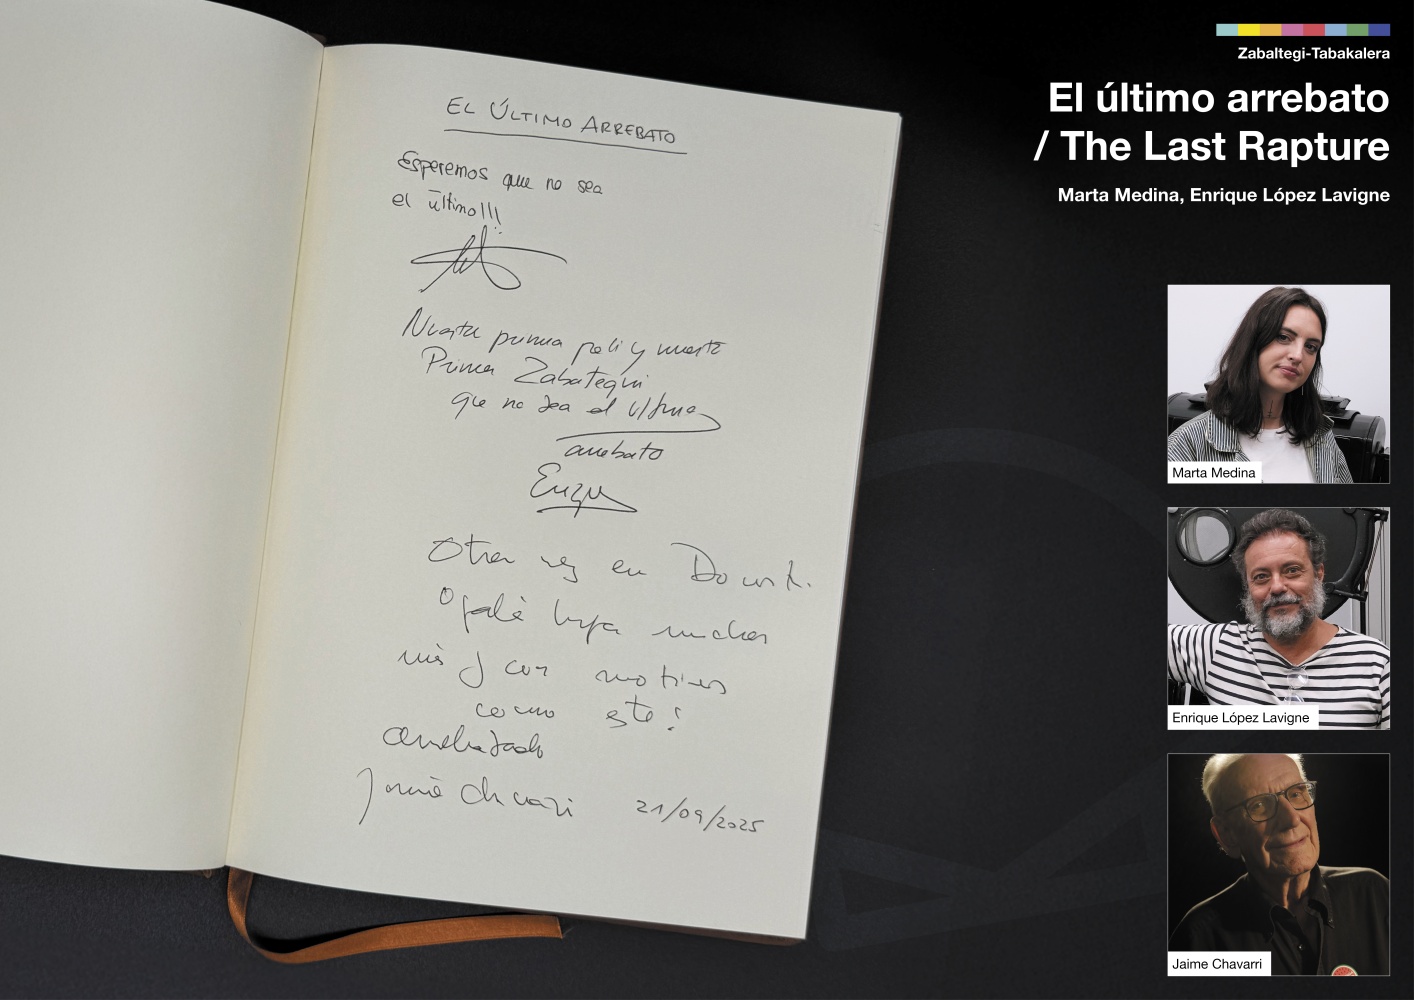 EL ÚLTIMO ARREBATO
Esperemos que no sea
el último!!!
Nuestra primera peli y nuestro
Primer Zabategui
que no sea el último
arrebato
Enrique
Otra vez en Donosti.
Ojalá haya muchas
más y con motivos
como este!
Arrebatado
Jaime Chavarri 21/09/2025
Zabaltegi-Tabakalera
El último arrebato
/ The Last Rapture
Marta Medina, Enrique López Lavigne
Marta Medina
Enrique López Lavigne
Jaime Chavarri